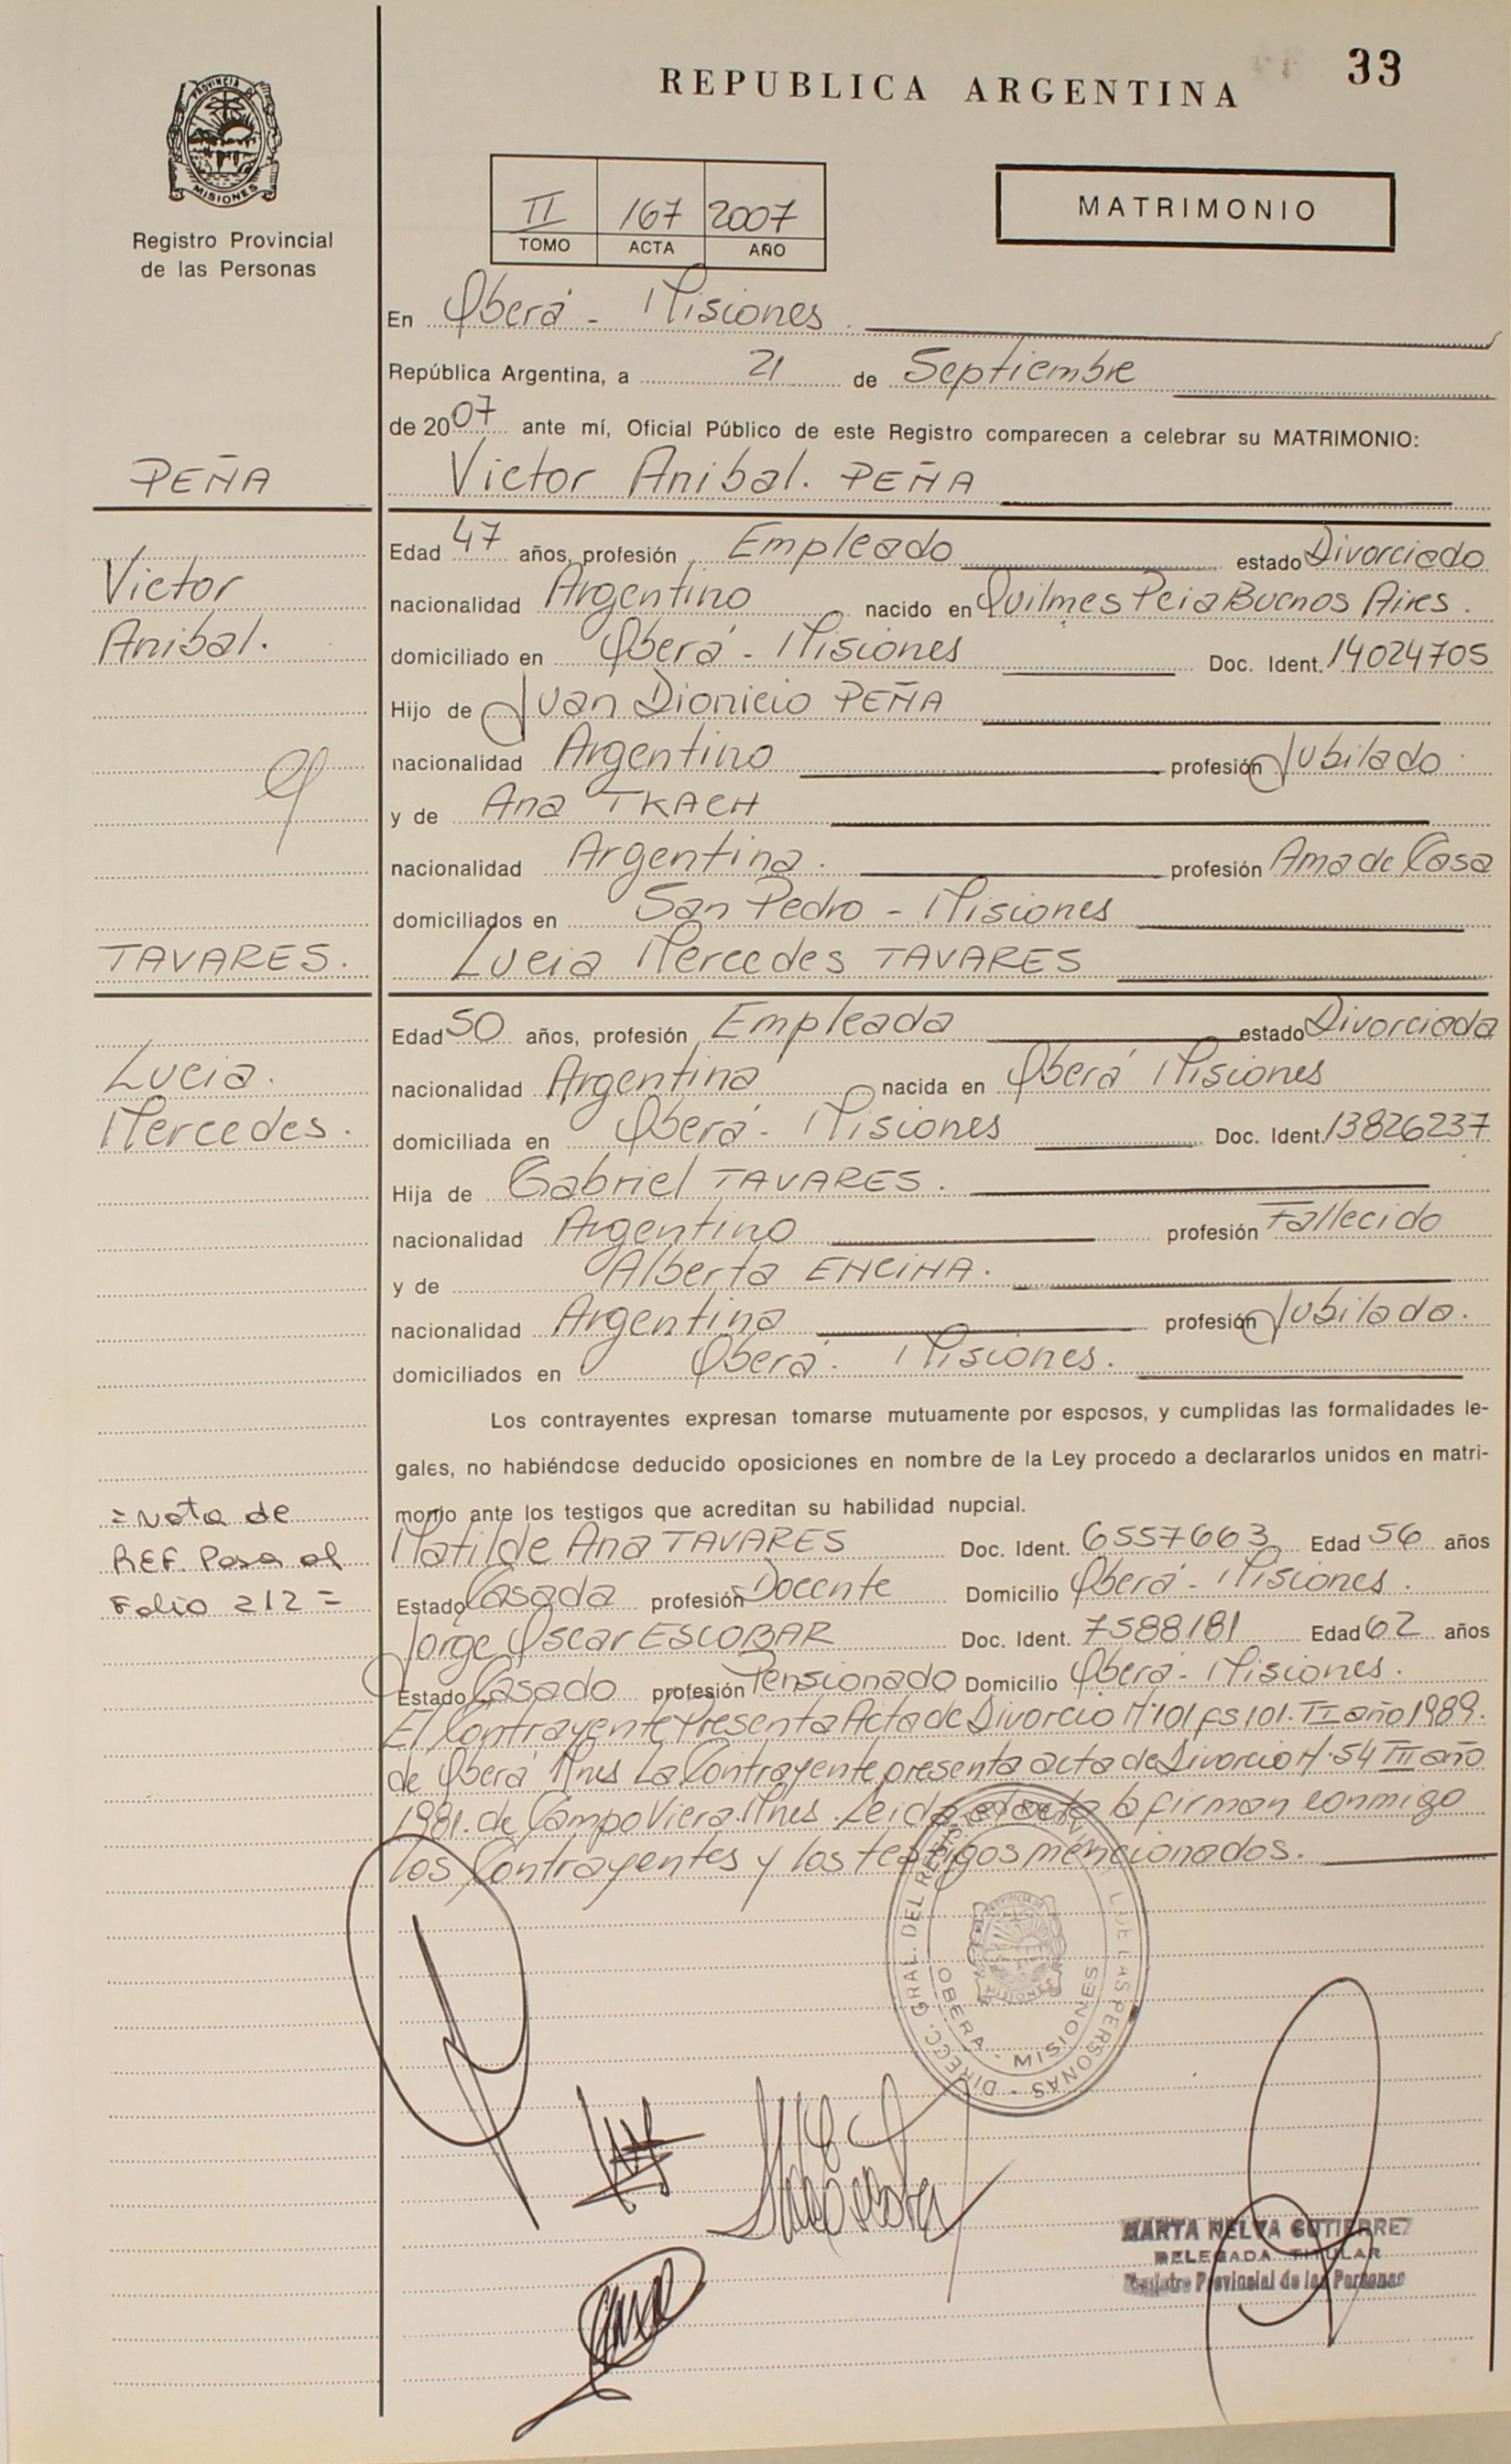 33
REPUBLICA ARGENTINA
PROVINCIA DE
MISIONES
Registro Provincial
de las Personas
II 167 2007
TOMO ACTA AÑO
MATRIMONIO
En Oberá - Misiones
República Argentina, a 21 de Septiembre
de 2007 ante mí, Oficial Público de este Registro comparecen a celebrar su MATRIMONIO:
PEÑA
Victor Anibal. PEÑA
Edad 47 años, profesión Empleado estado Divorciado
Victor
nacionalidad Argentino nacido en Quilmes Pcia Buenos Aires.
Anibal.
domiciliado en Oberá - Misiones Doc. Ident. 14024705
Hijo de Juan Dionicio PEÑA
nacionalidad Argentino profesión Jubilado
y
y de Ana TKACH
nacionalidad Argentina. profesión Ama de Casa
domiciliados en San Pedro - Misiones
TAVARES.
Lucia Mercedes TAVARES
Edad 50 años, profesión Empleada estado Divorciada
Lucia.
nacionalidad Argentina nacida en Oberá Misiones
Mercedes.
domiciliada en Oberá - Misiones Doc. Ident. 13826237
Hija de Gabriel TAVARES.
nacionalidad Argentino profesión Fallecido
y de Alberta ENCINA.
nacionalidad Argentina profesión Jubilada.
domiciliados en Oberá - Misiones.
Los contrayentes expresan tomarse mutuamente por esposos, y cumplidas las formalidades le-
gales, no habiéndose deducido oposiciones en nombre de la Ley procedo a declararlos unidos en matri-
monio ante los testigos que acreditan su habilidad nupcial.
= Nota de
REF. Pasa al
Folio 212 =
Matilde Ana TAVARES Doc. Ident. 6557663 Edad 56 años
Estado Casada profesión Docente Domicilio Oberá - Misiones.
Jorge Oscar ESCOBAR Doc. Ident. 7588181 Edad 62 años
Estado Casado profesión Pensionado Domicilio Oberá - Misiones.
El Contrayente Presenta Acta de Divorcio Nº101 fs 101. TII año 1989.
de Oberá Mnes La Contrayente presenta acta de Divorcio Nº54 TIII año
1981. de Campo Viera. Mnes. Leida el acta la firman conmigo
los Contrayentes y los testigos mencionados.
DIRECC. GRAL. DEL REGISTRO PROVINCIAL DE LAS PERSONAS
OBERA - MISIONES
MARTA NELVA GUTIERREZ
DELEGADA TITULAR
Registro Provincial de las Personas